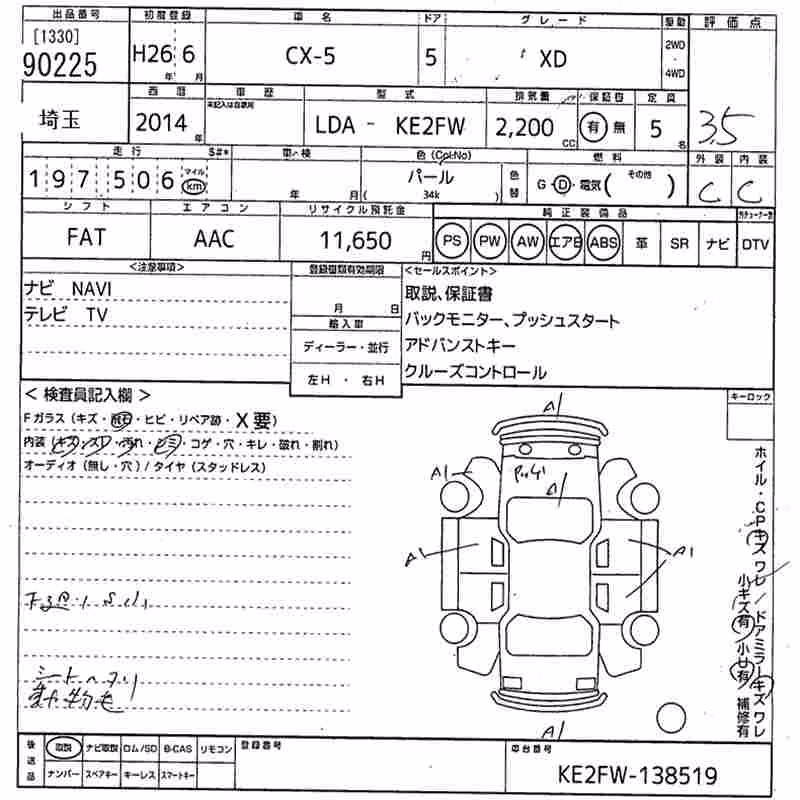 出品番号 初度登録 車名 ドア グレード 駆動 評価点
[1330]
90225 H26 6 CX-5 5 XD 2WD 4WD
年 月
埼玉 西暦 車歴 型式 排気量 保証書 定員 3.5
未記入は自家用
2014年 LDA - KE2FW 2,200 CC 有 無 5 名
走行 S#* 車検 色(Cpl:No) 燃料 外装 内装
197506 マイル km 年 月 パール ( 34k ) 色替 G・D・電気 ( その他 ) C C
シフト エアコン リサイクル預託金 純正装備品
FAT AAC 11,650円 PS PW AW エアB ABS 革 SR ナビ DTV
<注意事項> 登録書類有効期限 <セールスポイント>
ナビ NAVI 月 日 取説、保証書
テレビ TV 輸入車 バックモニター、プッシュスタート
ディーラー・並行 アドバンストキー
左H・右H クルーズコントロール
<検査員記入欄> キーロック
Fガラス(キズ・飛石・ヒビ・リペア跡・X要)
内装(キズ・スレ・汚れ・シミ・コゲ・穴・キレ・破れ・割れ)
オーディオ(無し・穴)/タイヤ(スタッドレス)
A1
A1
A1
A1
A1
A1
ホイル・CPキズワレ/ドアミラーキズワレ
小キズ有 小凹有 補修有
シートヘタリ
動物毛
後送品 取説 ナビ取説 ロム/SD B-CAS リモコン 登録番号 車台番号
ナンバー スペアキー キーレス スマートキー KE2FW-138519